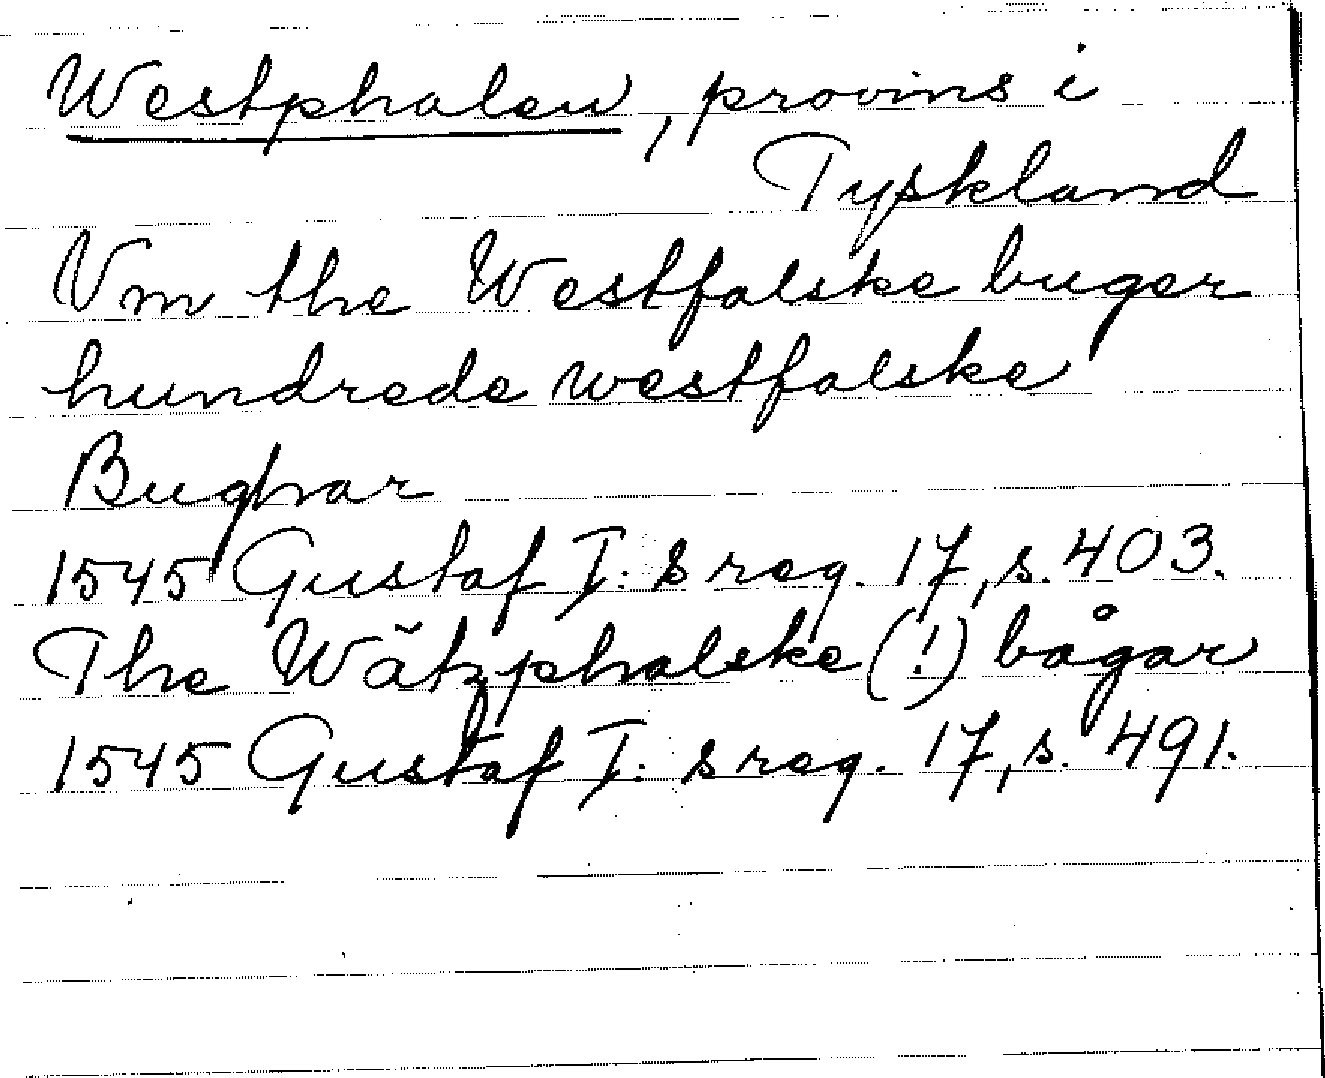 Westphalen, provins i
Tyskland
Vm the Westfalske buger
hundrede westfalske
Bughar
1545 Gustaf I: s reg. 17, s. 403.
The Wätzphalske (!) bågar
1545 Gustaf I: s reg. 17, s. 491.